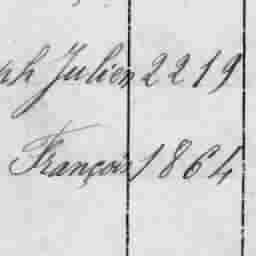 ph Julien 2219
François 1864